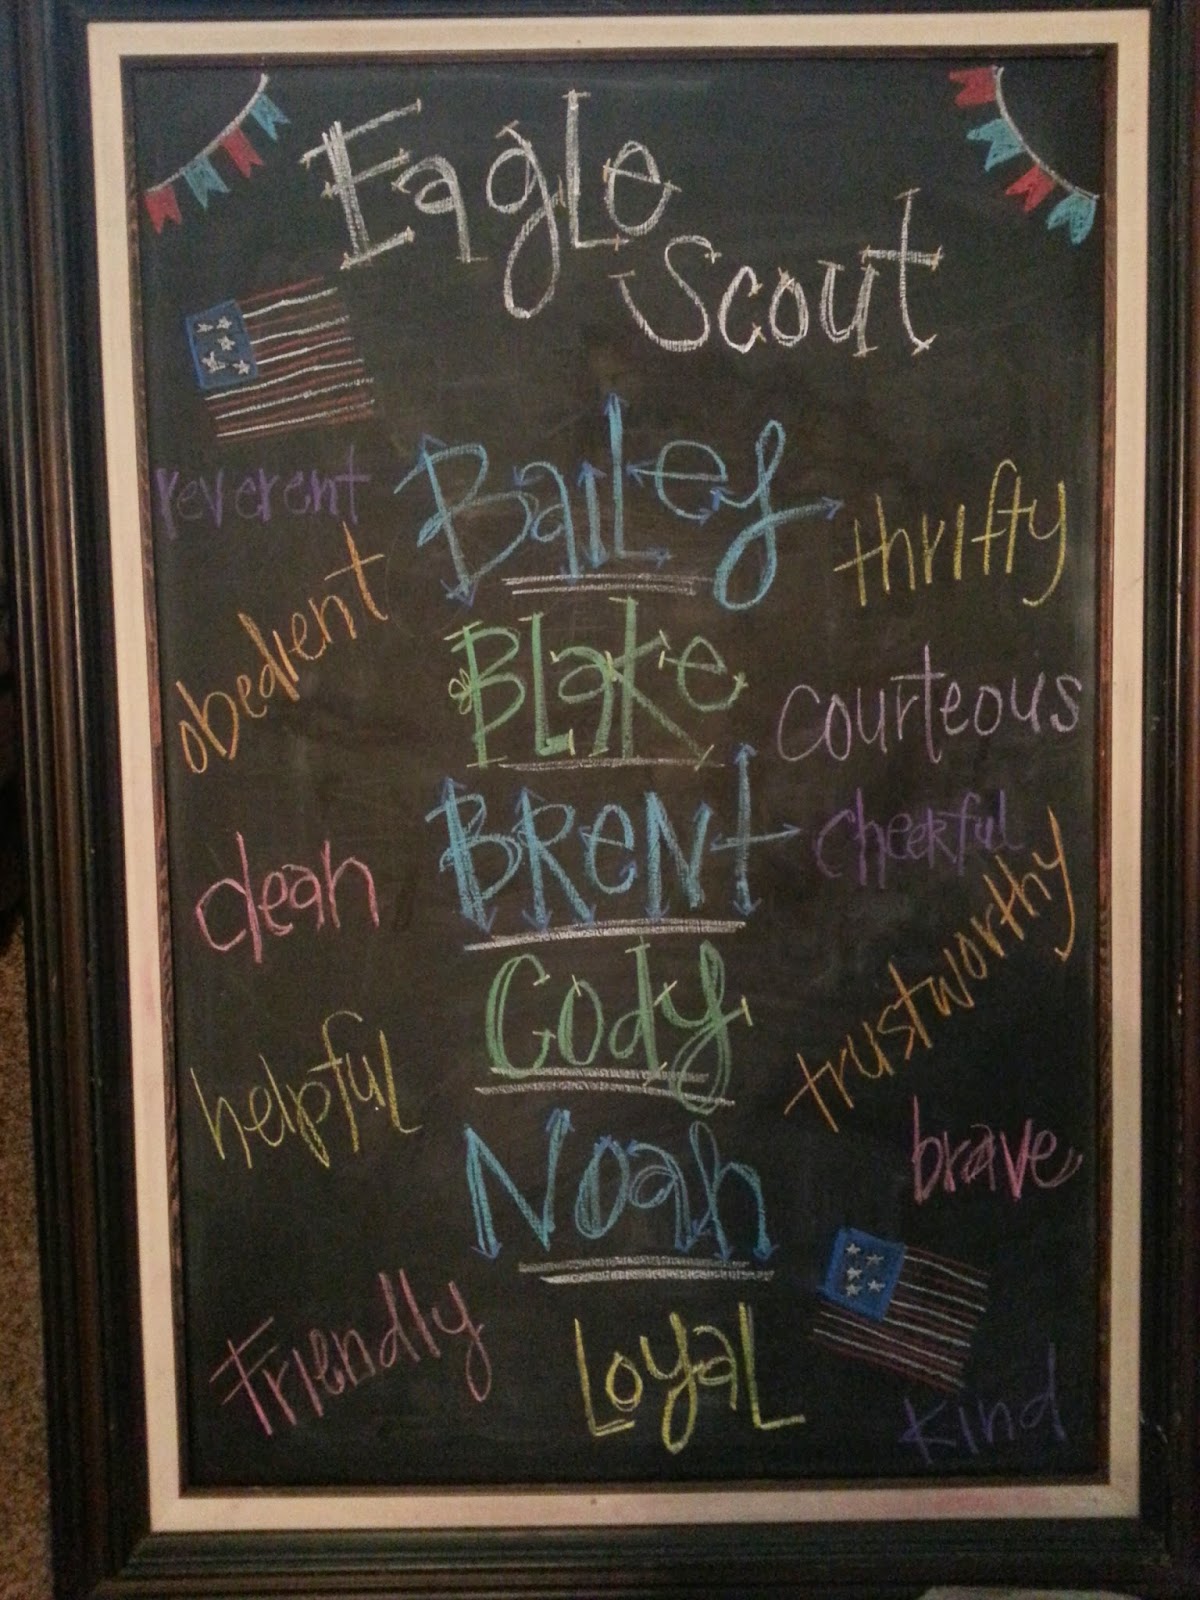 Eagle
Scout
reverent
Bailey
thrifty
obedient
Blake
courteous
clean
Brent
cheerful
trustworthy
helpful
Cody
brave
Noah
Friendly
Loyal
kind